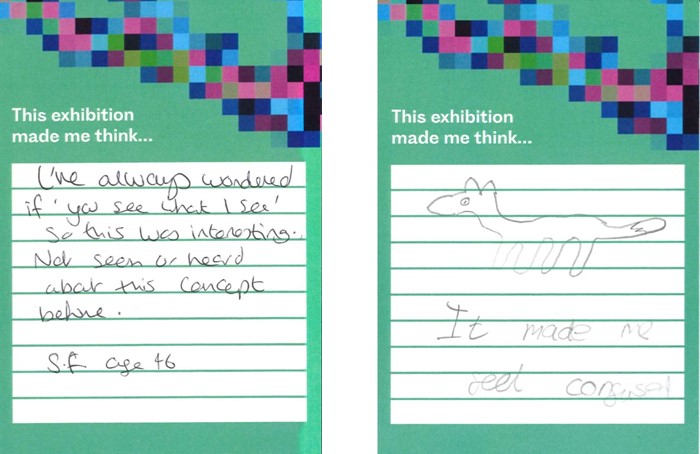 This exhibition
made me think...
I've always wondered
if 'you see what I see'
So this was interesting..
Not seen or heard
about this concept
before.
S.F age 46
This exhibition
made me think...
It made me
feel confused